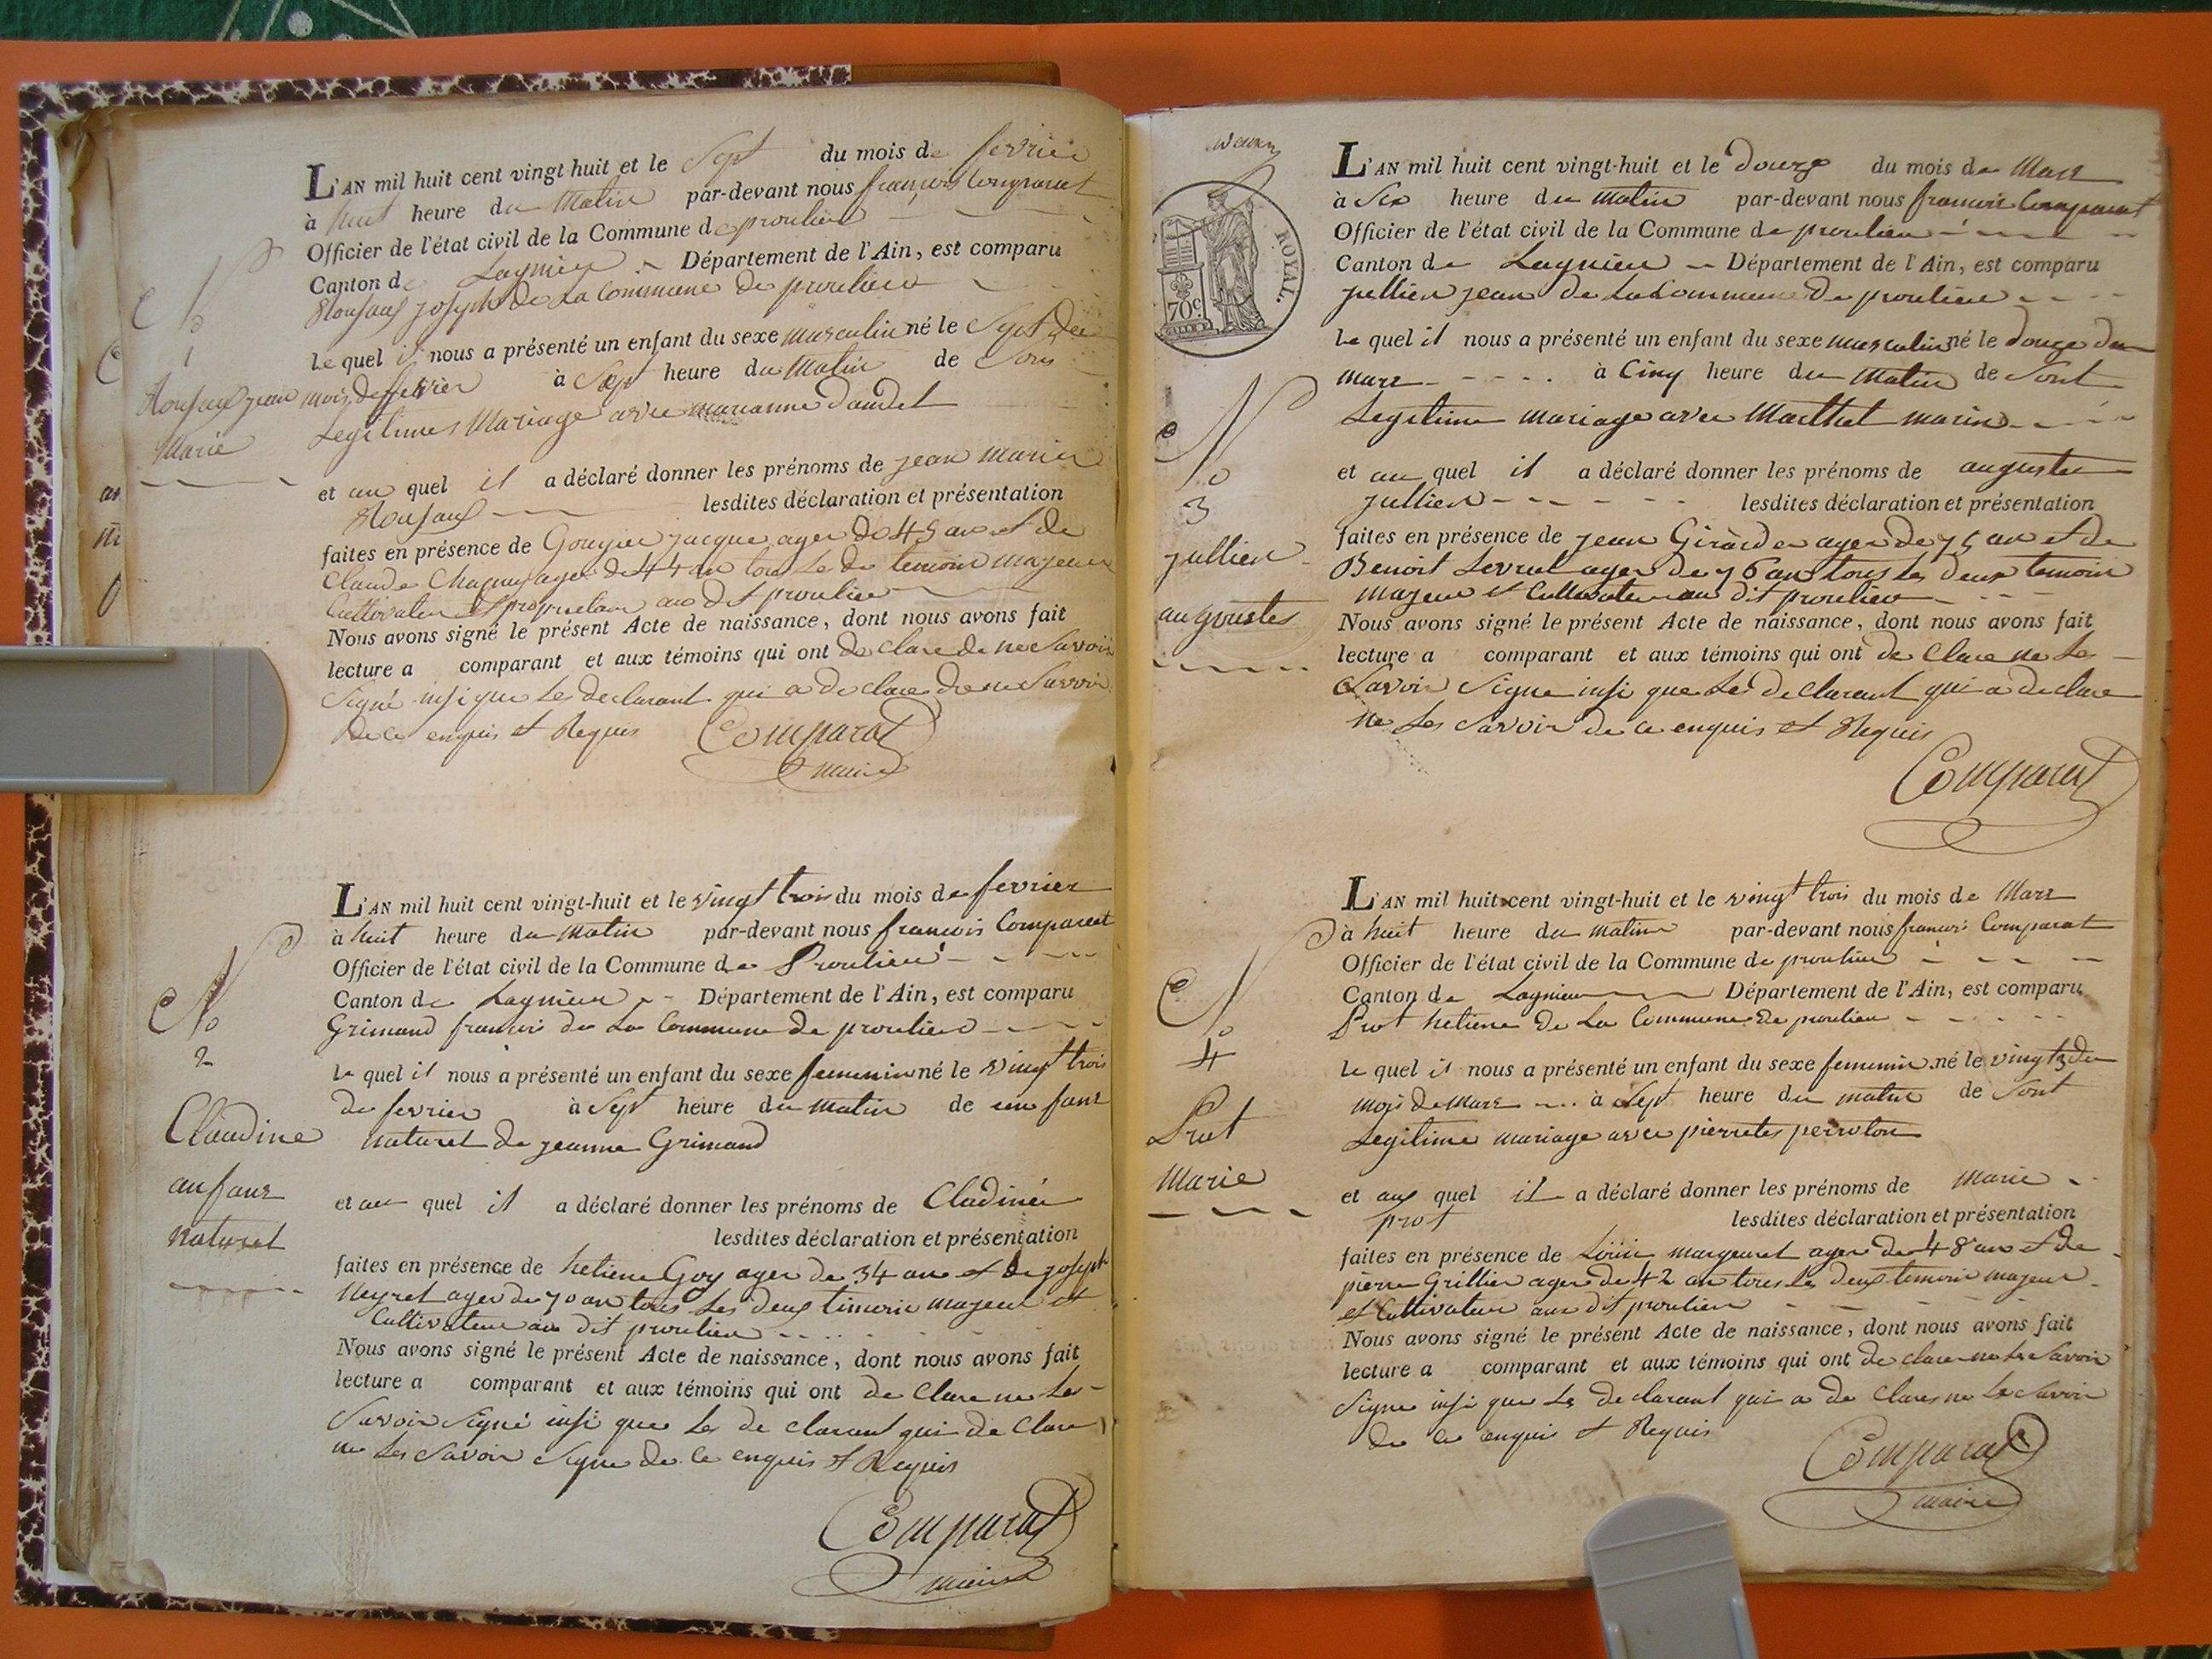 L'AN mil huit cent vingt-huit et le Sept du mois de fevrier
à huit heure du Matin par-devant nous françois Comparat
Officier de l'état civil de la Commune de proulieu
Canton de Lagnieu Département de l'Ain, est comparu
joseph de La Commune de proulieu
Le quel il nous a présenté un enfant du sexe masculin né le Sept du
mois de fevrier à Sept heure du Matin de Son
Legitimes Mariage avec marianne daudet
et au quel il a déclaré donner les prénoms de jean marie
lesdites déclaration et présentation
faites en présence de Gougier jacque ager de 45 an et de
Claude ager de 44 an tous Le de temoin majeur
Cultivateur et propuetaire au dit proulieu
Nous avons signé le présent Acte de naissance, dont nous avons fait
lecture a comparant et aux témoins qui ont de clare de ne Savoir
Signé insi que Le declarant qui a de clare de ne Savoir
de ce enquis et Requis Comparat
maire
No
1
jean
Marie
L'AN mil huit cent vingt-huit et le vingt trois du mois de fevrier
à huit heure du Matin par-devant nous francois Comparat
Officier de l'état civil de la Commune de Proulieu
Canton de Lagnieu Département de l'Ain, est comparu
Grimand francois de La Commune de proulieu
Le quel il nous a présenté un enfant du sexe femenin né le vingt trois
de fevrier à Sept heure du matin de un fant
naturel de jeanne Grimand
et au quel il a déclaré donner les prénoms de Cladinée
lesdites déclaration et présentation
faites en présence de hetiene Goy ager de 34 an et de joseph
Neyret ager de 70 an tous Les deux temoin majeur et
Cultivateur au dit proulieu
Nous avons signé le présent Acte de naissance, dont nous avons fait
lecture a comparant et aux témoins qui ont de Clare ne Le
Savoir Signé insi que Le de clarant qui de Clare
ne Les Savoir Signe de ce enquis et Requis
Comparat
maire
No
2
Claudine
anfant
naturel
ROYAL.
70c
L'AN mil huit cent vingt-huit et le douze du mois de Mars
à Six heure du Matin par-devant nous francois Comparat
Officier de l'état civil de la Commune de proulieu
Canton de Lagnieu Département de l'Ain, est comparu
jullien jean de La Commune de proulieu
Le quel il nous a présenté un enfant du sexe masculin né le douze du
mars à Cinq heure du Matin de Sont
Legitime mariage avec Marthet marin
et au quel il a déclaré donner les prénoms de auguste
jullien lesdites déclaration et présentation
faites en présence de jean Girard ager de 75 an et de
Benoit Levrat ager de 76 an tous les deux temoin
majeur et Cultivateur au dit proulieu
Nous avons signé le présent Acte de naissance, dont nous avons fait
lecture a comparant et aux témoins qui ont de Clare ne Le
Savoir Signe insi que Le de Clarant qui a de clare
ne Les Savoir de ce enquis et Requis
Comparat
No
3
jullien
augustes
L'AN mil huit cent vingt-huit et le vingt trois du mois de Mars
à huit heure du matin par-devant nous francois Comparat
Officier de l'état civil de la Commune de proulieu
Canton de Lagnieu Département de l'Ain, est comparu
Prot hetiene de La Commune de proulieu
Le quel il nous a présenté un enfant du sexe femenin né le vingt 3 du
mois de Mars à Sept heure du matin de Sont
Legitime mariage avec pierrettes perroton
et aux quel il a déclaré donner les prénoms de Marie
prot lesdites déclaration et présentation
faites en présence de Louis margeuret ager de 48 an et de
pierre Grillier ager de 42 an tous les deux temoin majeur
et Cultivateur aux dit proulieu
Nous avons signé le présent Acte de naissance, dont nous avons fait
lecture a comparant et aux témoins qui ont de clare ne Le Savoir
Signe insi que Le de clarant qui a de Clares ne Le Savoir
de ce enquis et Requis
Comparat
maire
No
4
Prot
Marie